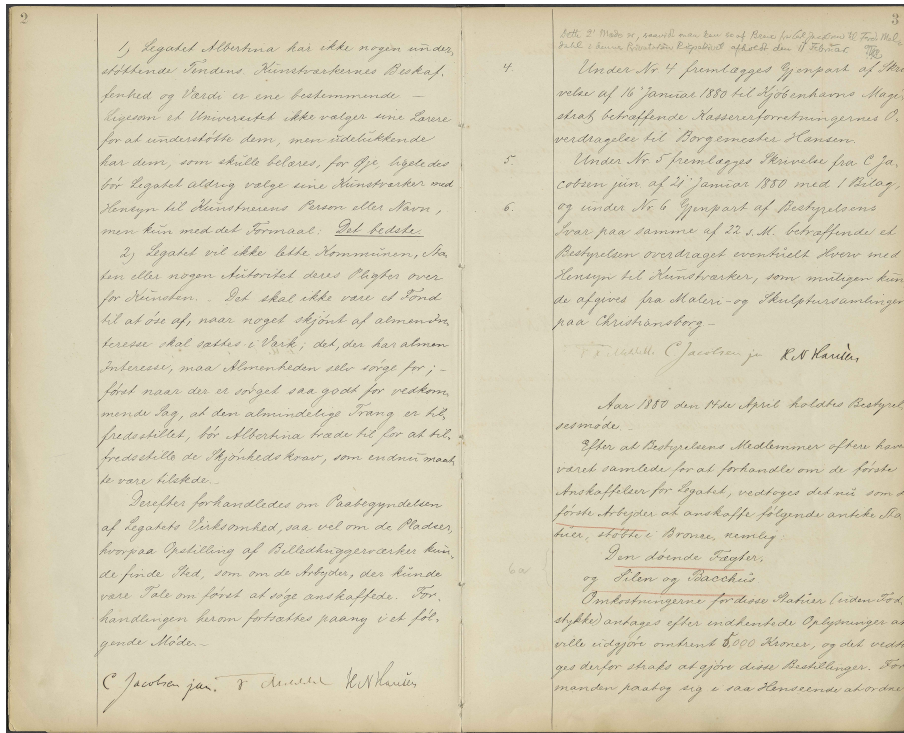 2
1, Legatet Albertina har ikke nogen under,
støttende Tendens. Kunstværkernes Beskaf,
fenhed og Værdi er ene bestemmende –
ligesom et Universitet ikke vælger sine Lærere
for at understøtte dem, men udelukkende
har dem, som skulle belæres, for Øje, ligeledes
bør Legatet aldrig vælge sine Kunstværker med
Hensyn til Kunstnerens Person eller Navn,
men kun med det Formaal: Det bedste.
2, Legatet vil ikke lette Kommunen, Sta,
ten eller nogen Autoritet deres Pligter over
for Kunsten. – Det skal ikke være et Fond
til at øse af, naar noget skjønt af almen In,
teresse skal sættes i Værk; det, der har almen
Interesse, maa Almenheden selv sørge for; –
først naar der er sørget saa godt for vedkom,
mende Sag, at den almindelige Trang er til,
fredsstillet, bør Albertina træde til for at til,
fredsstille de Skjønhedskrav, som endnu maat,
te være tilstede. –
Derefter forhandledes om Paabegyndelsen
af Legatets Virksomhed, saa vel om de Pladser,
hvorpaa Opstilling af Billedhuggerværker kun,
de finde Sted, som om de Arbejder, der kunde
være Tale om først at søge anskaffede. For,
handlingen herom fortsættes paany i et føl,
gende Møde. –
C Jacobsen jun. H N Hansen
3
Dette 2' Møde er, saavidt man kan se af Breve fra C Jacobsen til
afholdt den Februar
4. Under Nr 4 fremlægges Gjenpart af Skri
velse af 16' Januar 1880 til Kjøbenhavns Magi
strat, betræffende Kassererforretningernes O,
verdragelse til Borgemester Hansen.
5. Under Nr. 5 fremlægges Skrivelse fra C Ja,
cobsen jun. af 21' Januar 1880 med 1 Bilag,
6. og under Nr. 6 Gjenpart af Bestyrelsens
Svar paa samme af 22 s. M. betræffende et
Bestyrelsen overdraget eventuelt Hverv med
Hensyn til Kunstværker, som muligen kun
de afgives fra Maleri- og Skulptursamlingen
paa Christiansborg –
C Jacobsen jun H N Hansen
Aar 1880 den 14de April holdtes Bestyrel
sesmøde. –
Efter at Bestyrelsens Medlemmer oftere have
været samlede for at forhandle om de første
Anskaffelser for Legatet, vedtoges det nu som d
første Arbejder at anskaffe følgende antike Sta
tuer, støbte i Bronce, nemlig:
Den døende Fægter,
6a og Silen og Bacchus
Omkostningerne for disse Statuer (uden Fod,
stykke) antages efter indhentede Oplysninger at
ville udgjøre omtrent 5,000 Kroner, og det vedto
ges derfor straks at gjøre disse Bestillinger. For
manden paatog sig i saa Henseende at ordne